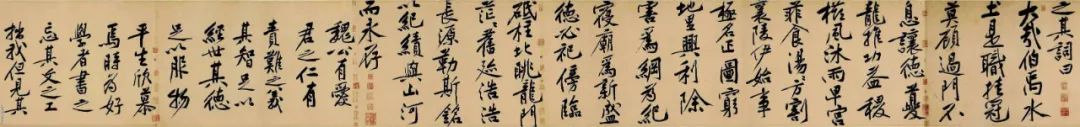 之其詞曰
大哉伯禹水
土是職挂冠
莫顧過門不
息讓德夔
龍推功益稷
櫛風沐雨卑宮
菲食湯方割
襄陵伊始事
極名正圖窮
地里興利除
害爲綱爲紀
寢廟爲新盛
德必祀傍臨
砥柱北眺龍門
茫舊迹浩浩
長源勒斯銘
以紀績與山河
而永存
魏公有愛
君之仁有
責難之義
其智足以
經世其德
足以服物
平生欣慕
焉時爲好
學者書之
忘其文之工
拙我但見其